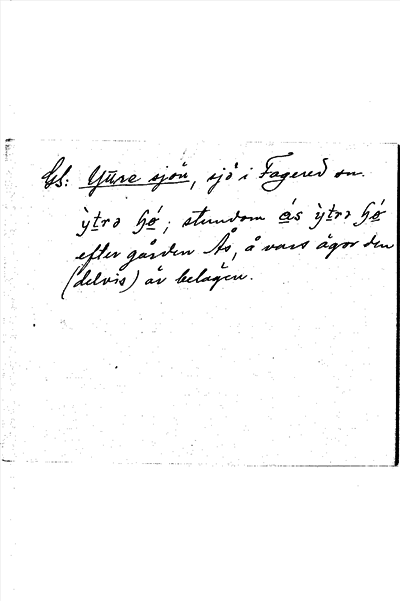 Gs: Yttre sjön, sjö i Fagered sn.
ỳtrə ɧǿ; stundom ás ỳtrə ɧǿ
efter gården Ås, å vars ägor den
(delvis) är belägen.